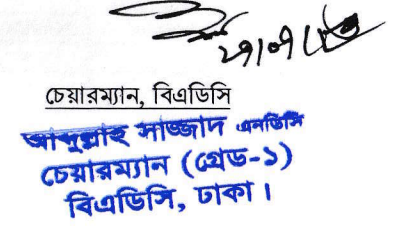 চেয়ারম্যান, বিএডিসি
আব্দুল্লাহ সাজ্জাদ এনডিসি
চেয়ারম্যান (গ্রেড-১)
বিএডিসি, ঢাকা।